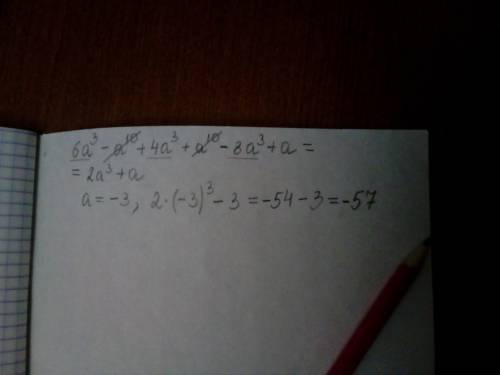 6a³ - a¹⁰ + 4a³ + a¹⁰ - 8a³ + a =
= 2a³ + a
a = -3, 2·(-3)³ - 3 = -54 - 3 = -57